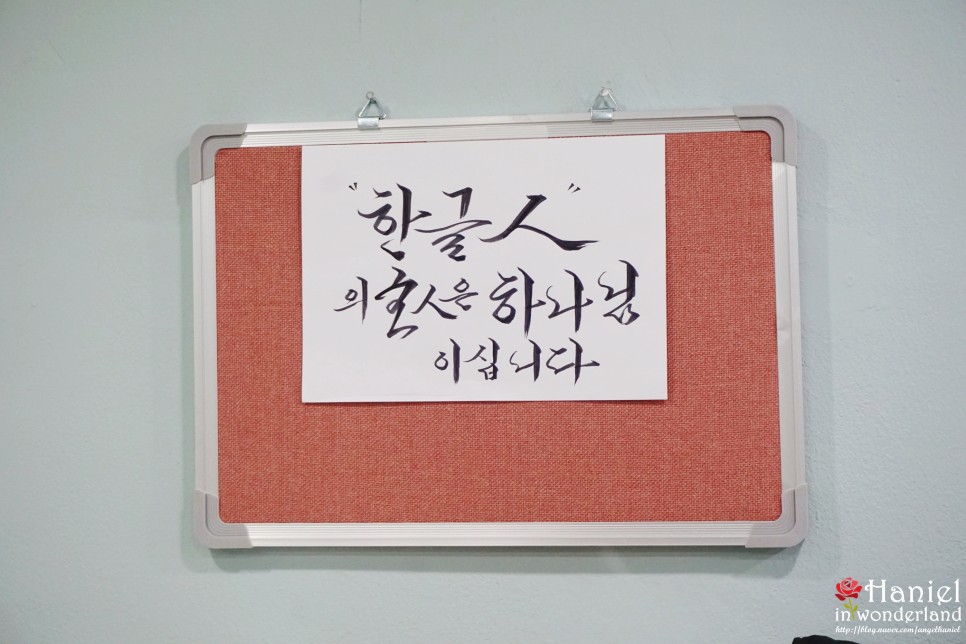 "한글人"
의 주人은 하나님
이십니다
Haniel
in wonderland
http://blog.naver.com/angelhaniel